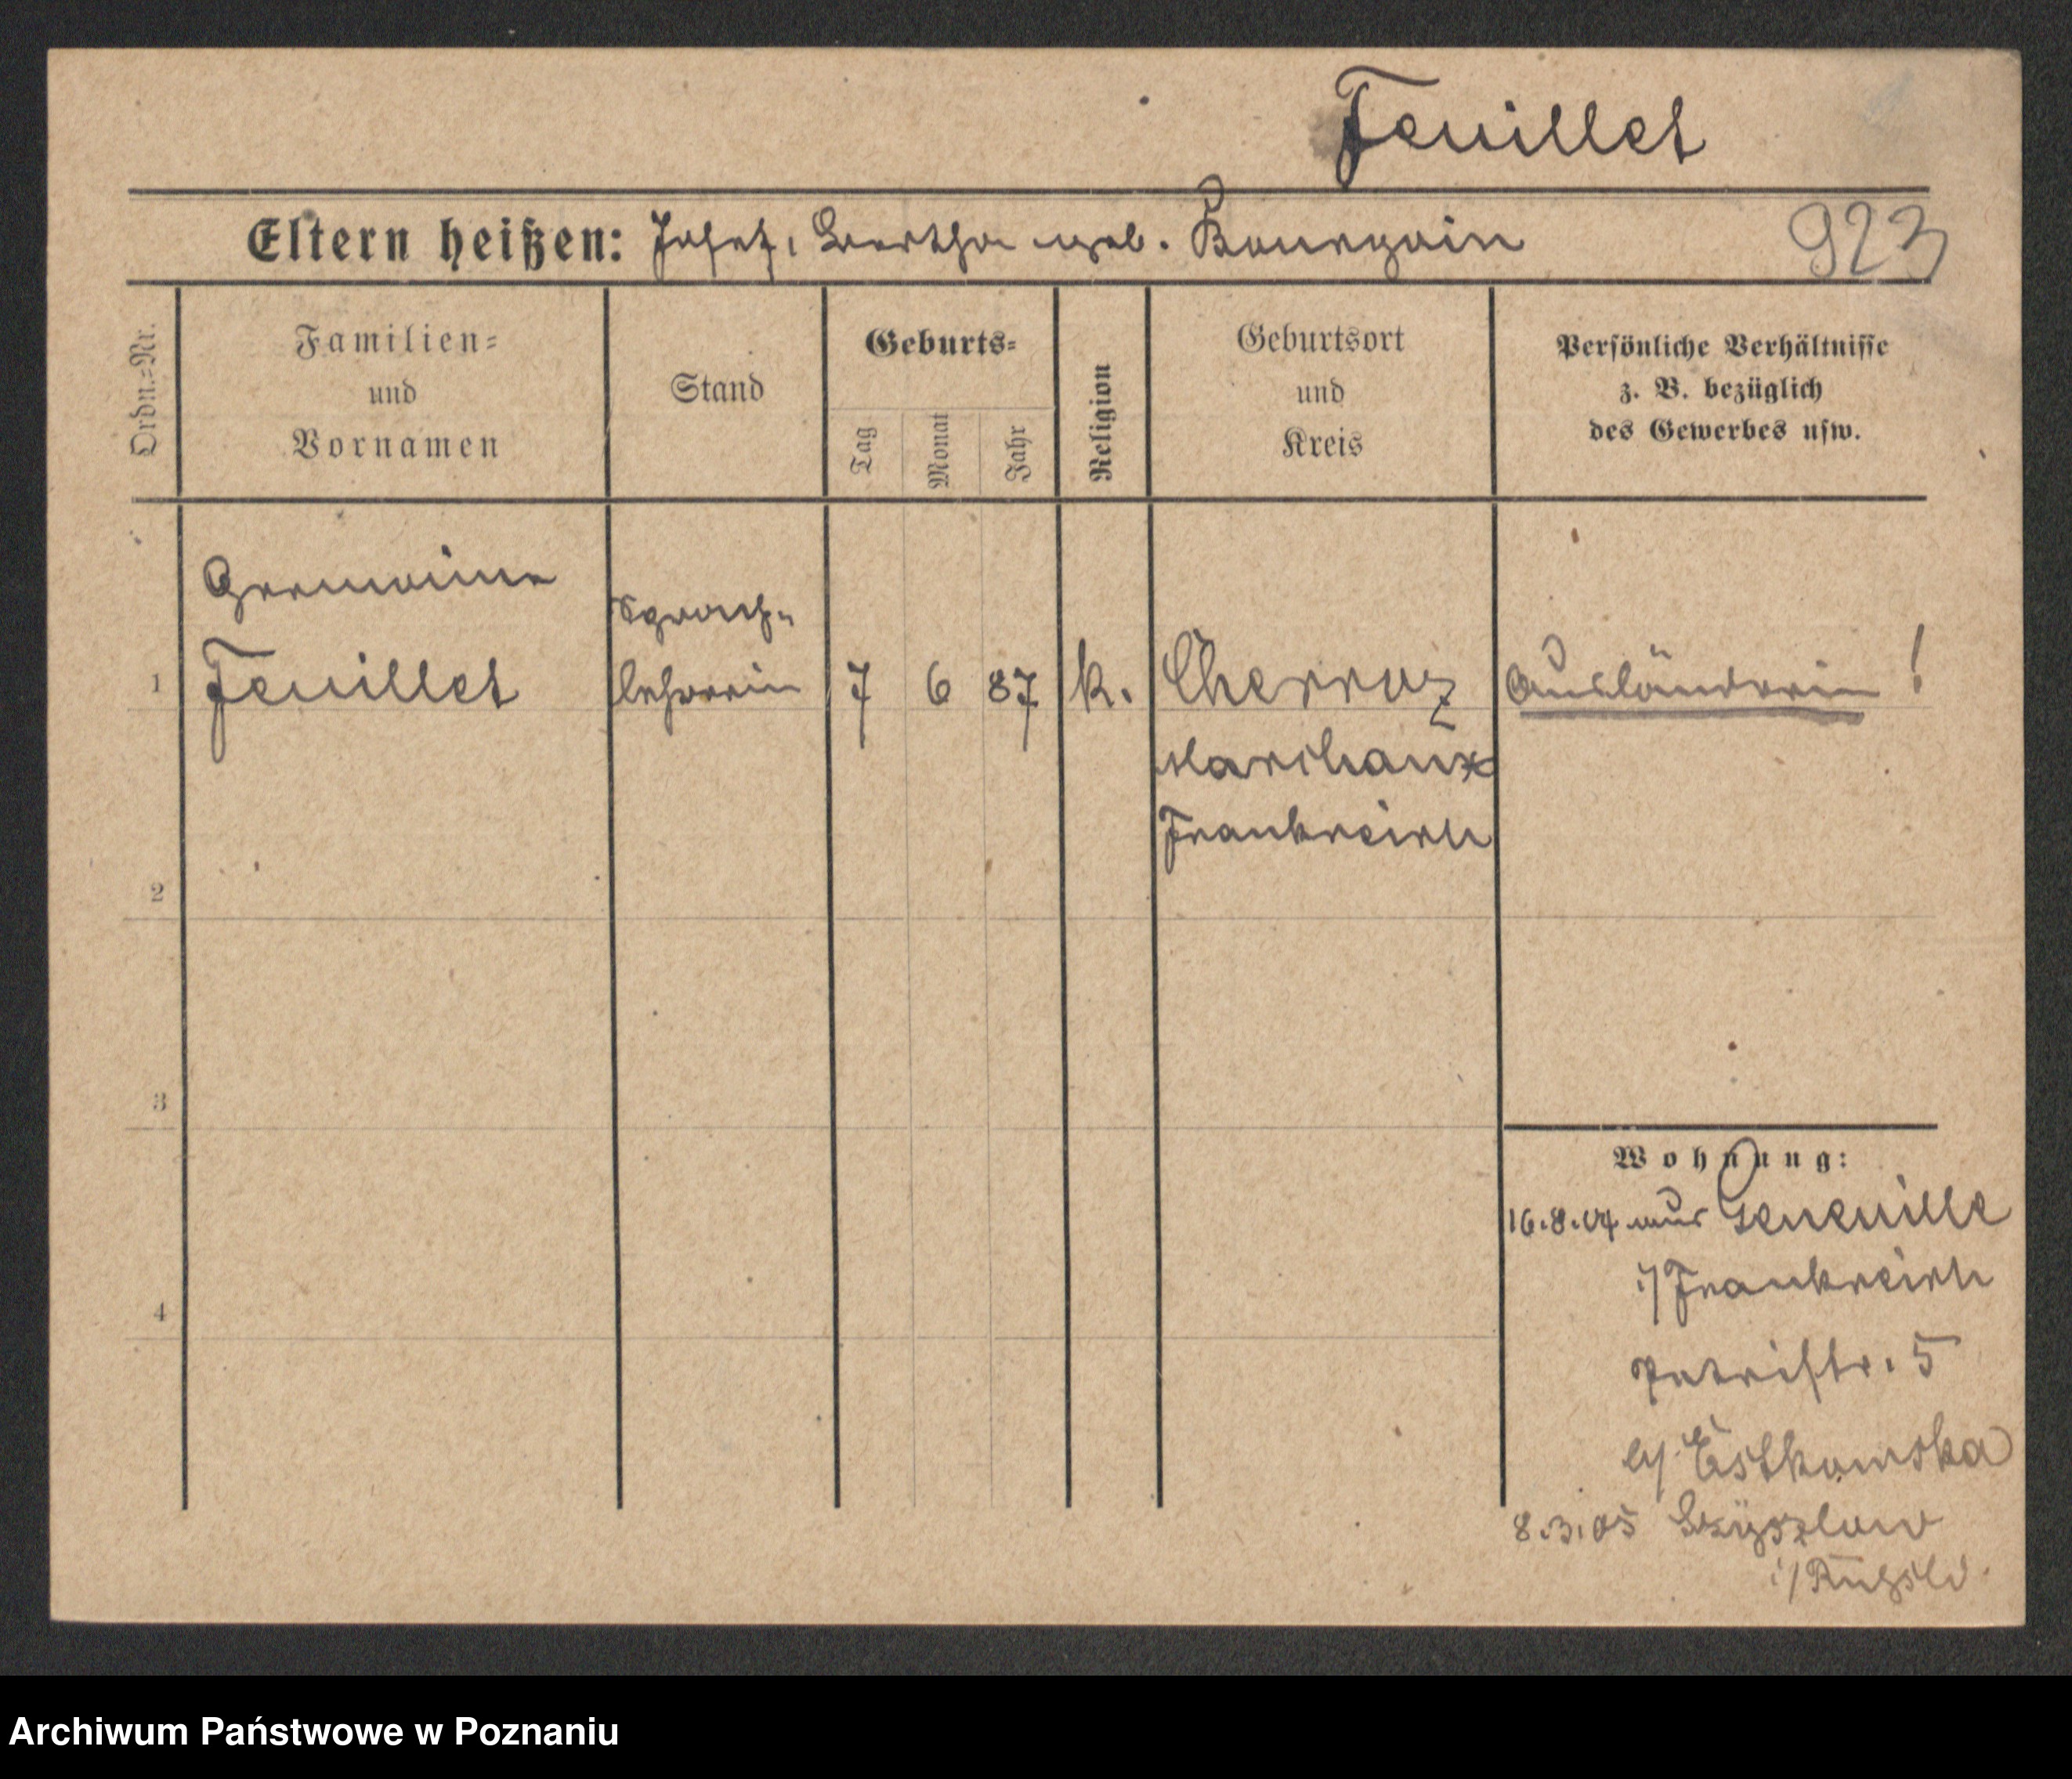 Feuillet
Eltern heißen: Josef, Bertha geb. Bourgoin
923
Ordn.=Nr.
Familien=
und
Vornamen
Stand
Geburts=
Tag
Monat
Jahr
Religion
Geburtsort
und
Kreis
Persönliche Verhältnisse
z. B. bezüglich
des Gewerbes usw.
Germaine
Sprach-
1 Feuillet lehrerin 7 6 87 k. Ausländerin !
Frankreich
2
3
4
Wohnung:
16.8.04 aus Geneuille
i/ Frankreich
Petristr. 5
b/ Estkowska
8.3.05
i/
Archiwum Państwowe w Poznaniu